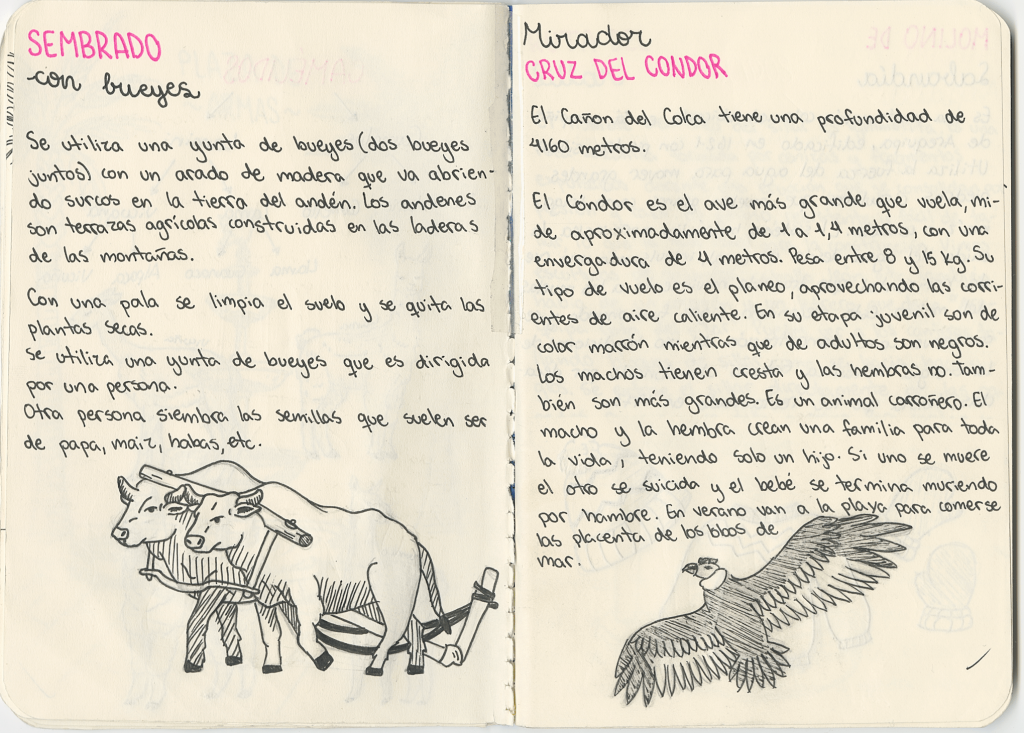 SEMBRADO
con bueyes
Se utiliza una yunta de bueyes (dos bueyes
juntos) con un arado de madera que va abrien-
do surcos en la tierra del andén. Los andenes
son terrazas agrícolas construidas en las laderas
de las montañas.
Con una pala se limpia el suelo y se quita las
plantas secas.
Se utiliza una yunta de bueyes que es dirigida
por una persona.
Otra persona siembra las semillas que suelen ser
de papa, maiz, habas, etc.
Mirador
CRUZ DEL CONDOR
El Cañon del Colca tiene una profundidad de
4160 metros.
El Cóndor es el ave más grande que vuela, mi-
de aproximadamente de 1 a 1,4 metros, con una
envergadura de 4 metros. Pesa entre 8 y 15 kg. Su
tipo de vuelo es el planeo, aprovechando las corri-
entes de aire caliente. En su etapa juvenil son de
color marrón mientras que de adultos son negros.
Los machos tienen cresta y las hembras no. Tam-
bién son más grandes. Es un animal carroñero. El
macho y la hembra crean una familia para toda
la vida, teniendo solo un hijo. Si uno se muere
el otro se suicida y el bebé se termina muriendo
por hambre. En verano van a la playa para comerse
las placenta de los lobos de
mar.